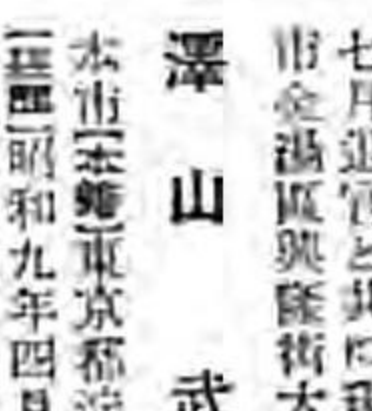 七月退官と共に
市金湯區興隆街大
澤山武
本市【本籍】東京都
【經歷】昭和九年四月